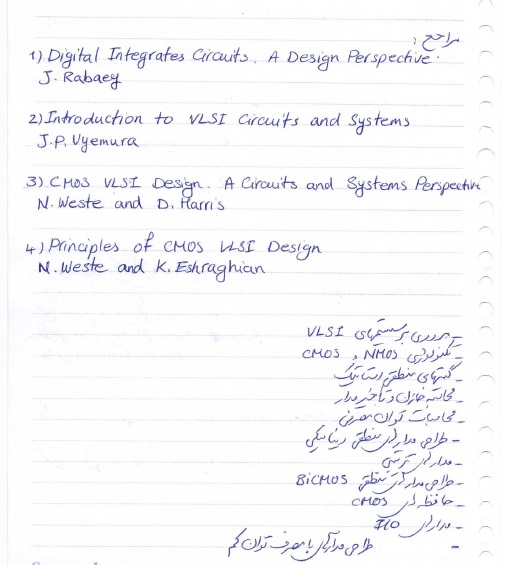 مراجع :
1) Digital Integrates Circuits. A Design Perspective.
J. Rabaey
2) Introduction to VLSI Circuits and Systems
J.P. Uyemura
3) CMOS VLSI Design. A Circuits and Systems Perspective
N. Weste and D. Harris
4) Principles of CMOS VLSI Design
N. Weste and K. Eshraghian
- مروری بر سیستمهای VLSI
- تکنولوژی NMOS و CMOS
- گیتهای منطقی استاتیک
- محاسبه خازن و تأخیر مدار
- محاسبات توان مصرفی
- طراحی مدارهای منطقی دینامیکی
- مدارهای ترتیبی
- طراحی مدارهای منطقی BiCMOS
- حافظه های CMOS
- مدارهای I/O
- طراحی مدارهای با مصرف توان کم